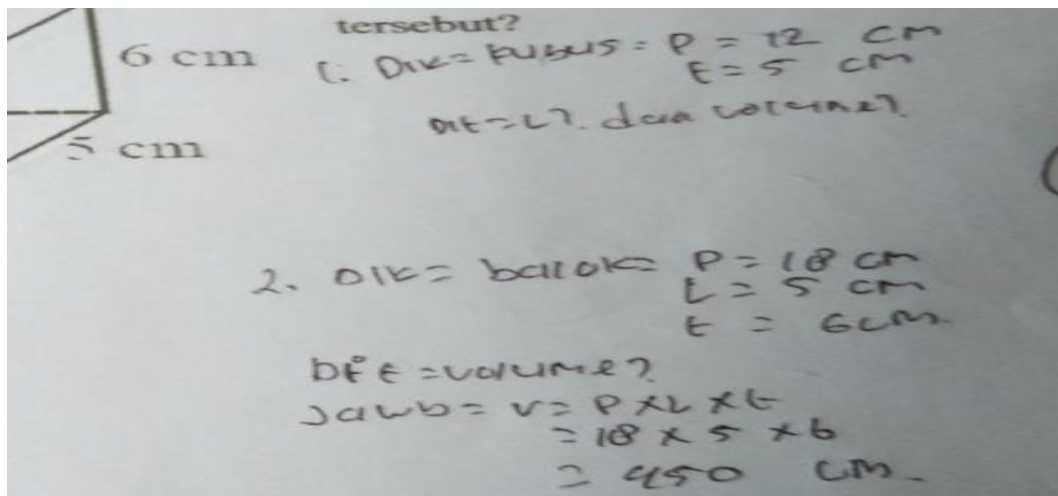 tersebut?
6 cm
1. Dik = kubus = P = 12 cm
t = 5 cm
Dit = L?. dan volume?
5 cm
2. Dik = balok = P = 18 cm
L = 5 cm
t = 6 cm.
Dit = volume?
Jawb = V = P x L x t
= 18 x 5 x 6
= 450 cm.